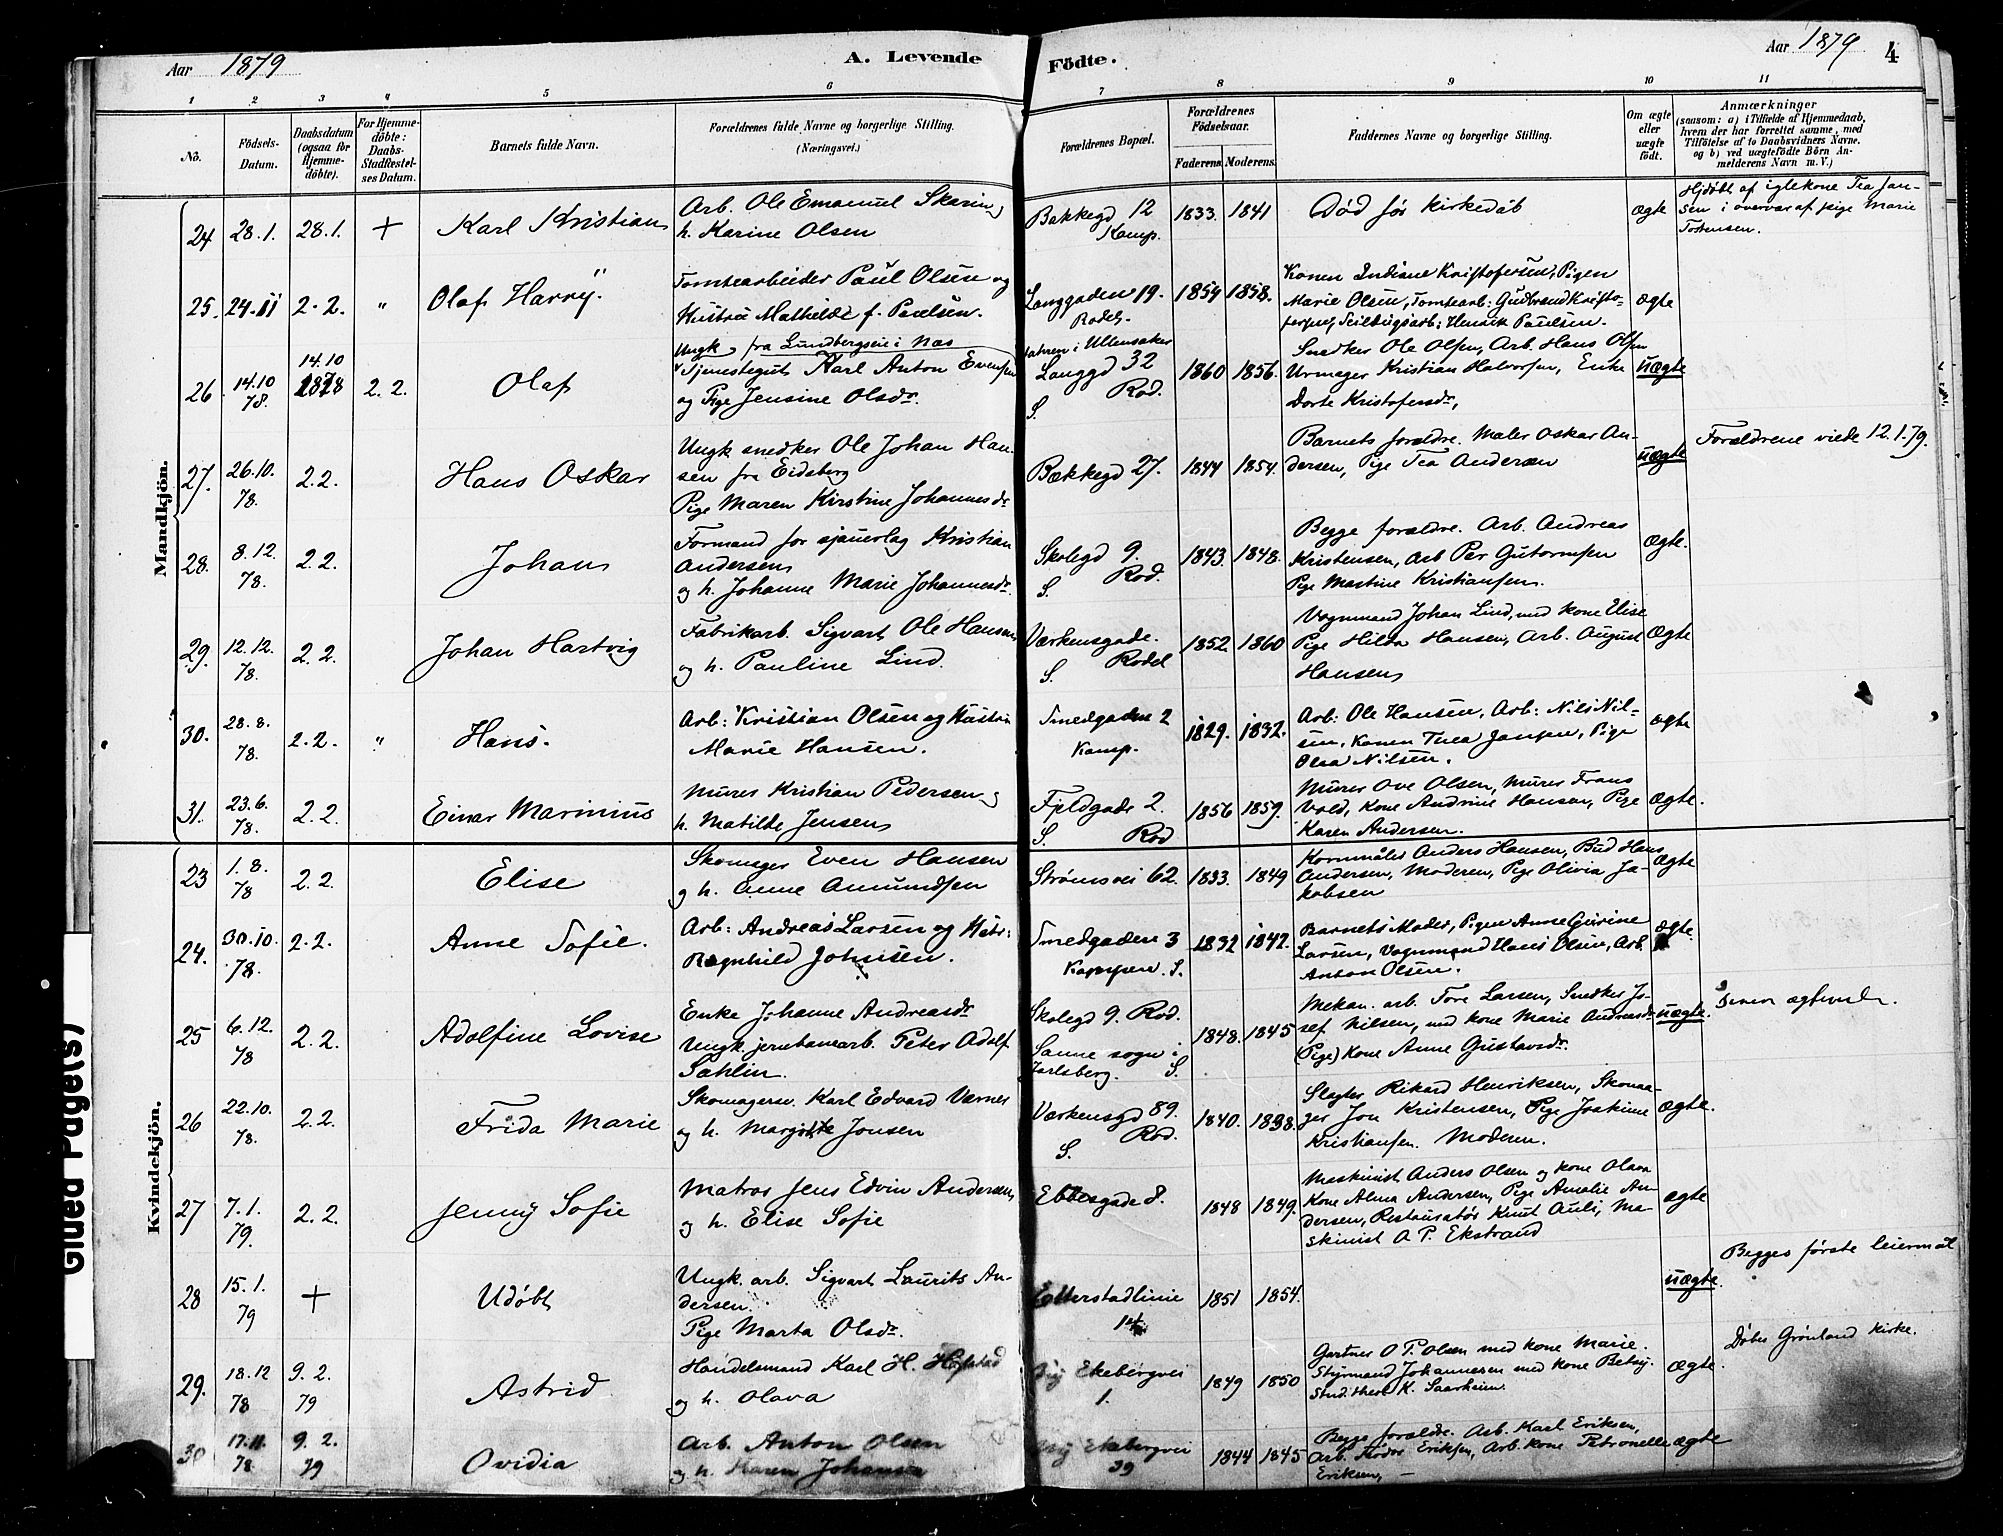 Aar 1879
A. Levende Fødte.
Aar 1879
4
1 2 3 4 5 6 7 8 9 10 11
No.
Fødsels-Datum.
Daabsdatum (ogsaa for Hjemme-døbte).
For Hjemme-døbte: Daabs-Stadfæstel-ses Datum.
Barnets fulde Navn.
Forældrenes fulde Navne og borgerlige Stilling. (Næringsvei.)
Forældrenes Bopæl.
Forældrenes Fødselsaar.
Faderens. Moderens.
Faddernes Navne og borgerlige Stilling.
Om ægte eller uægte født.
Anmærkninger
(saasom: a) i Tilfælde af Hjemmedaab,
hvem der har forrettet samme, med
Tilføielse af to Daabsvidners Navne.
og b) ved uægtefødte Børn An-
melderens Navn m. V.)
Mandkjön.
24 28.1. 28.1. + Karl Kristian
Arb. Ole Emanuel Skaring
h. Karine Olsen
Bakkegd 12
Kamp.
1833. 1841
Død før kirkedåb
ægte
Hjdøbt af iglekone Tea Jan-
sen i overvær af pige Marie
Tostensen.
25. 24.11 2.2. " Olaf Harry.
Tomtearbeider Paul Olsen og
Hustru Mathilde f. Paulsen.
Langgaden 19.
Rodel.
1854 1858.
Konen Indiane Kristofersen, Pigen
Marie Olsen, Tomtearb: Gudbrand Kristo-
fersen, Seildugsarb: Henrik Paulsen.
ægte
26 14.10 78. 14.10 1878 2.2. Olaf
Ungk fra Lundbergseie i Næs
Tjenestegut Karl Anton Evensen
og Pige Jensine Olsdr.
i Ullensaker
Langgd 32
S. Rod.
1860 1856.
Snedker Ole Olsen, Arb. Hans Olsen
Urmager Kristian Halvorsen, Enke
Dorte Kristofersdr,
uægte
27. 26.10. 78. 2.2. Hans Oskar
Ungk snedker Ole Johan Han-
sen fra Eidsberg
Pige Maren Kirstine Johannesdr
Bækkegd 27.
1844 1854.
Barnets forældre. Maler Oskar An-
dersen, Pige Tea Andersen
uægte
Forældrene viede 12.1.79.
28. 8.12. 78. 2.2. Johan
Formand for sjauerlag Kristian
Andersen
og h. Johanne Marie Johannesdr.
Skolegd 9.
S. Rod.
1843. 1848.
Begge forældre. Arb. Andreas
Kristensen, Arb Per Gutormsen
Pige Martine Kristiansen.
Ægte.
29. 12.12. 78. 2.2. Johan Hartvig
Fabrikarb. Sigvart Ole Hansen
og h. Pauline Lind.
Værkensgade.
S. Rodel
1852 1860
Vognmand Johan Lind, med kone Elise
Pige Hilda Hansen, Arb. August
Hansen
Ægte
30. 28.8. 78. 2.2. " Hans.
Arb: Kristian Olsen og Hustru
Marie Hansen.
Smedgaden 2
Kamp.
1829. 1832.
Arb: Ole Hansen, Arb: Nils Nil-
sen, Konen Thea Jansen, Pige
Olea Nilsen.
ægte
31. 23.6. 78. 2.2. Einar Marinius
Murer Kristian Pedersen og
h. Matilde Jensen
Fjeldgade 2.
S. Rod
1856 1859.
Murer Ove Olsen, Murer Frans
Vold, Kone Andrine Hansen, Pige
Karen Andersen.
Ægte.
Kvindekjön.
23 1.8. 78 2.2. Elise
Skomager Even Hansen
og h. Anne Amundsen
Strømsvei 62.
1833. 1849
Kornmåler Anders Hansen, Bud Hans
Andersen, Moderen, Pige Olivia Ja-
kobsen
Ægte
24. 30.10. 78. 2.2. Anne Sofie.
Arb: Andreas Larsen og Hstr:
Ragnhild Johnsen.
Smedgaden 3
Kampen. S.
1832 1842.
Barnets Moder, Pigen Anne Gurine
Larsen, Vognmand Hans Olsen, Arb.
Anton Olsen.
ægte.
25 6.12. 78 2.2. Adolfine Lovise
Enke Johanne Andreasdr
Ungk jernbanearb. Peter Adolf
Sahlin.
Skolegd 9. Rod.
Sanne sogn i
Jarlsberg. S.
1848. 1845
Mekan. arb. Tore Larsen, Snedker Jo-
sef Nilsen, med kone Marie Andreasdr
(Pige) Kone Anne Gustavsdr.
uægte.
26 22.10. 78. 2.2. Frida Marie
Skomagersv. Karl Edvard Værnes
og h. Margit Jonsen
Værkensgd 89.
S. Rod.
1840. 1838.
Slagter Rikard Henriksen, Skoma-
ger Jon Kristensen, Pige Joakime
Kristiansen. Moderen.
Ægte.
27 7.1. 79. 2.2. Jenny Sofie
Matros Jens Edvin Andersen,
og h. Elise Sofie
Ebbesgade 8.
1848 1849.
Maskinist Anders Olsen og kone Olava
Kone Alma Andersen, Pige Amalie An-
dersen, Restauratør Knut Auli, Ma-
skinist A P. Ekstrand
ægte
28 15.1. 79 + Udøbt
Ungk. arb. Sigvart Laurits An-
dersen.
Pige Marta Olsdr.
Etterstadlinie
1851 1854.
uægte.
Begges første leiermål
29. 18.12 78 9.2. 79 Astrid
Handelsmand Karl H. Hofstad
og h. Olava
Ekebergvei
1.
1849 1850
Gartner O P. Olsen med kone Marie.
Styrmand Johannesen med kone Betsy.
Stud. theol K. Saarheim.
Ægte.
Døbes Grønland Kirke.
30 17.11. 78 9.2. 79 Ovidia
Arb. Anton Olsen
og h. Karen Johansen
Ekebergvei
39
1844 1845
Begge forældre. Arb. Karl Eriksen,
Arb. Eriksen, Arb. kone Petronelle
Eriksen, –
ægte
Glued Page(s)